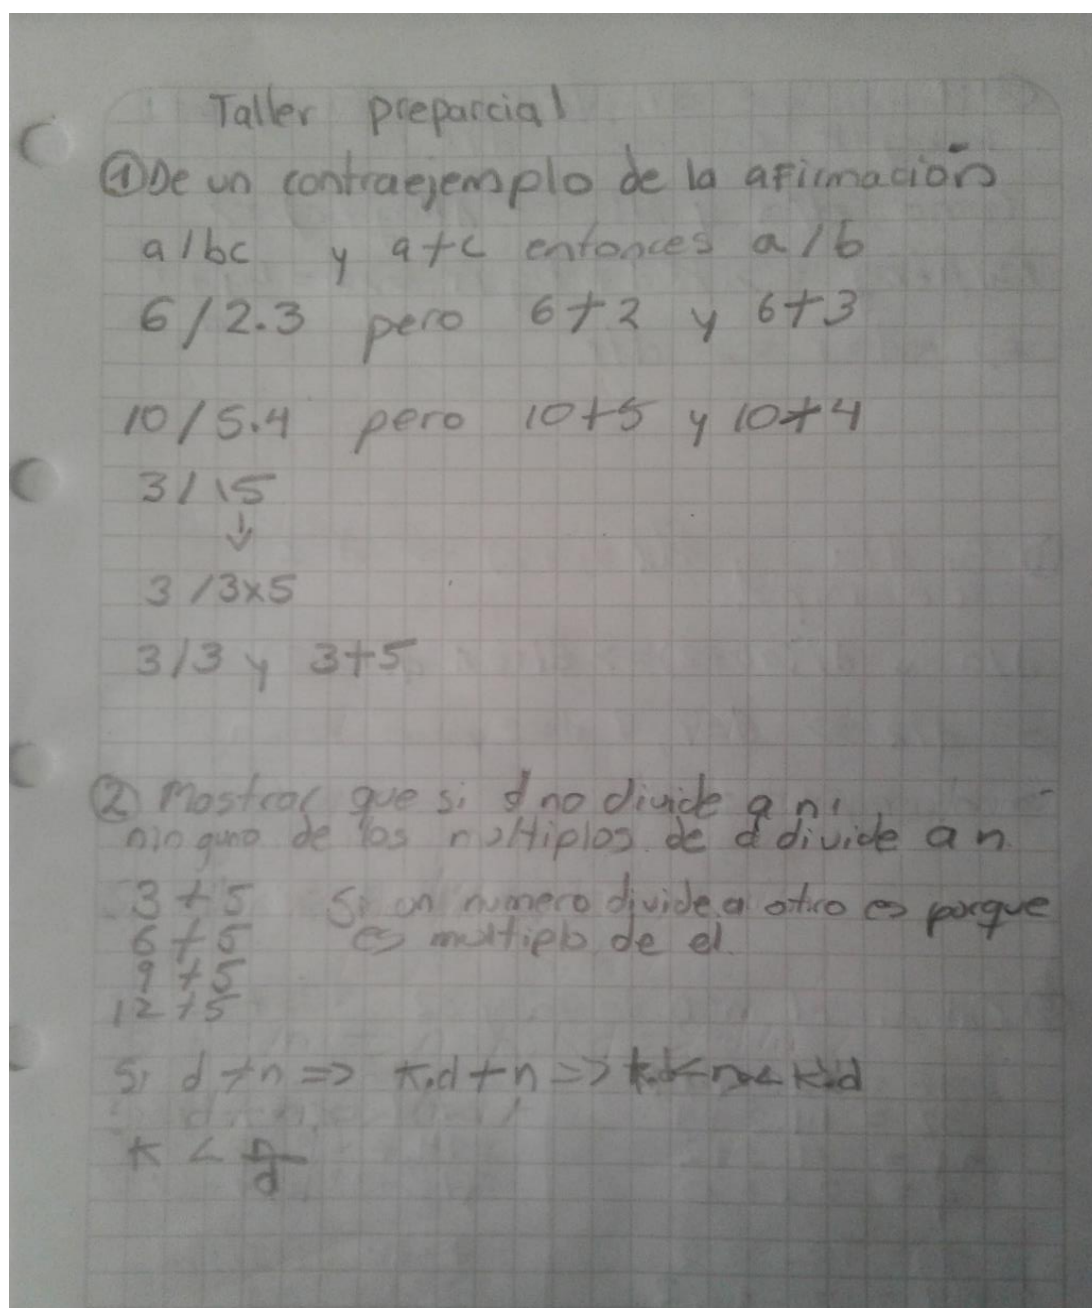 Taller preparcial
① De un contraejemplo de la afirmación
a/bc y a+c entonces a/b
6/2.3 pero 6+2 y 6+3
10/5.4 pero 10+5 y 10+4
3/15
↓
3/3x5
3/3 y 3+5
② Mostrar que si d no divide a n,
ninguno de los multiplos de d divide a n.
3+5 Si un numero divide a otro es porque
6+5 es multiplo de el.
9+5
12+5
Si d+n => k.d+n =>
k < n/d